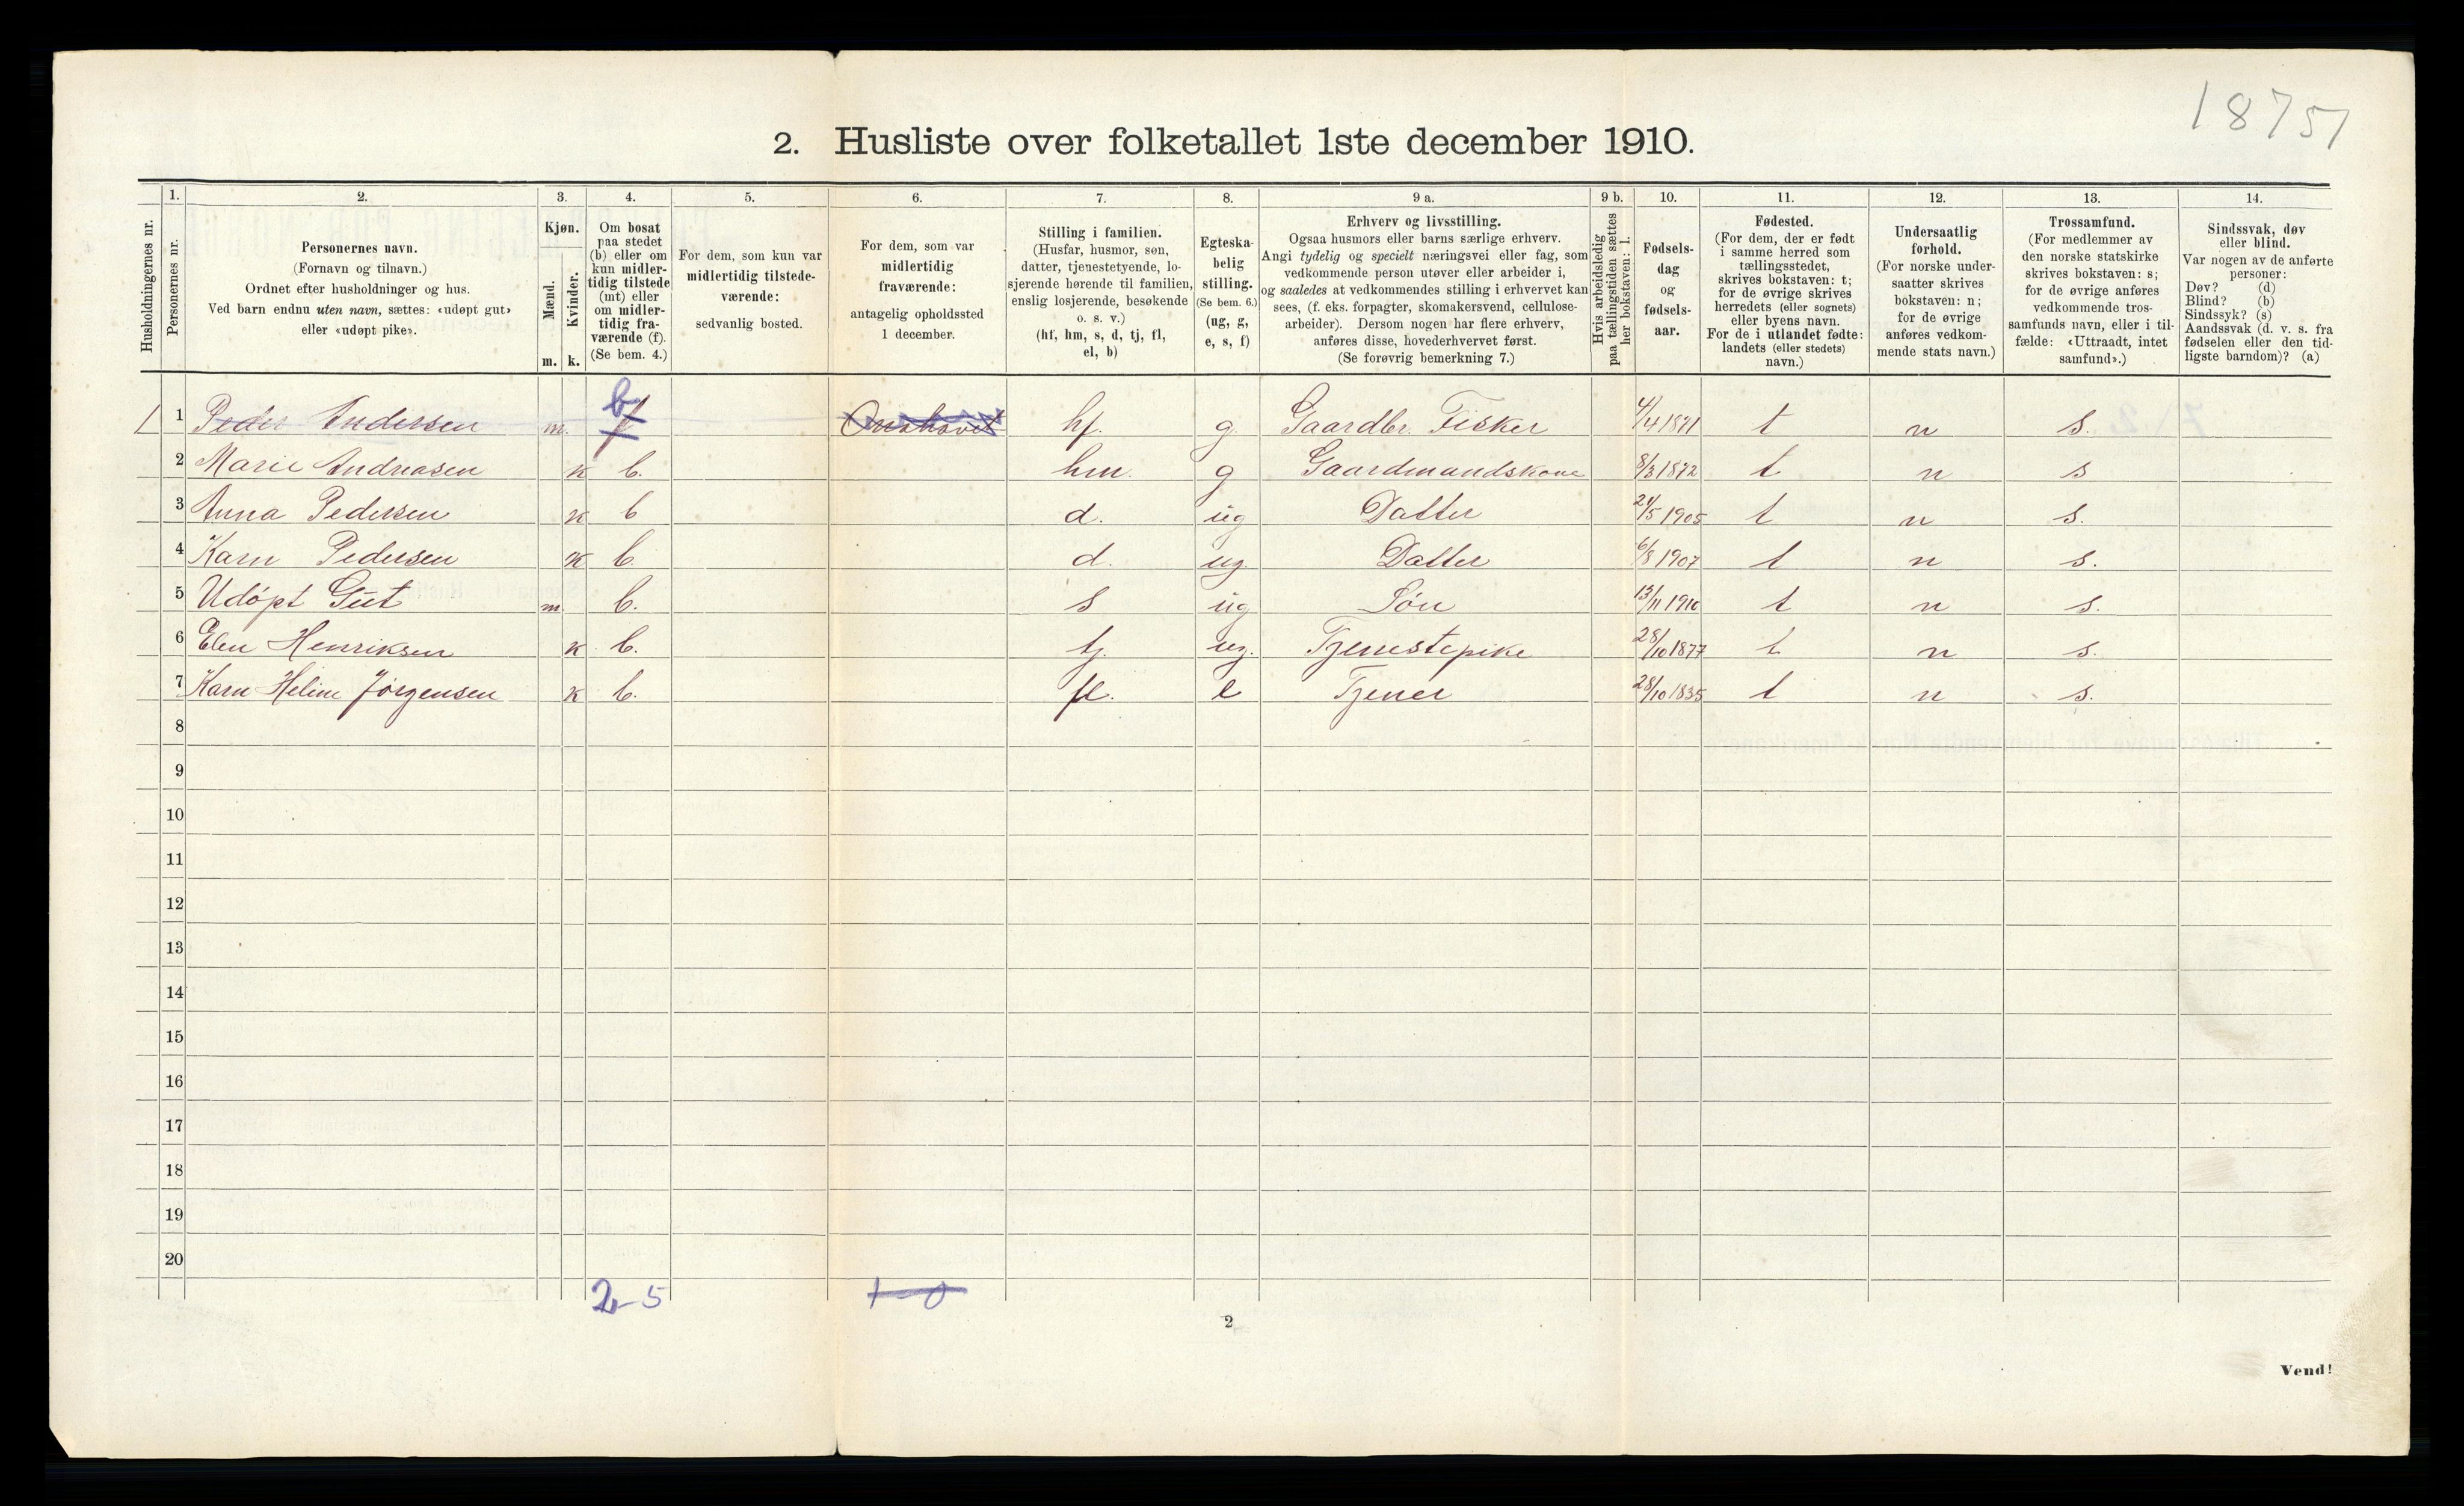 1875
2. Husliste over folketallet 1ste december 1910.
Husholdningernes nr.
1.
Personernes nr.
2.
Personernes navn.
(Fornavn og tilnavn.)
Ordnet efter husholdninger og hus.
Ved barn endnu uten navn, sættes: «udøpt gut»
eller «udøpt pike».
3.
Kjøn.
Mænd.
Kvinder.
m. k.
4.
Om bosat
paa stedet
(b) eller om
kun midler-
tidig tilstede
(mt) eller
om midler-
tidig fra-
værende (f).
(Se bem. 4.)
5.
For dem, som kun var
midlertidig tilstede-
værende:
sedvanlig bosted.
6.
For dem, som var
midlertidig
fraværende:
antagelig opholdssted
1 december.
7.
Stilling i familien.
(Husfar, husmor, søn,
datter, tjenestetyende, lo-
sjerende hørende til familien,
enslig losjerende, besøkende
o. s. v.)
(hf, hm, s, d, tj, fl,
el, b)
8.
Egteska-
belig
stilling.
(Se bem. 6.)
(ug, g,
e, s, f)
9 a.
Erhverv og livsstilling.
Ogsaa husmors eller barns særlige erhverv.
Angi tydelig og specielt næringsvei eller fag, som
vedkommende person utøver eller arbeider i,
og saaledes at vedkommendes stilling i erhvervet kan
sees, (f. eks. forpagter, skomakersvend, cellulose-
arbeider). Dersom nogen har flere erhverv,
anføres disse, hovederhvervet først.
(Se forøvrig bemerkning 7.)
9 b.
Hvis arbeidsledig
paa tællingstiden sættes
her bokstaven: l.
10.
Fødsels-
dag
og
fødsels-
aar.
11.
Fødested.
(For dem, der er født
i samme herred som
tællingsstedet,
skrives bokstaven: t;
for de øvrige skrives
herredets (eller sognets)
eller byens navn.
For de i utlandet fødte:
landets (eller stedets)
navn.)
12.
Undersaatlig
forhold.
(For norske under-
saatter skrives
bokstaven: n;
for de øvrige
anføres vedkom-
mende stats navn.)
13.
Trossamfund.
(For medlemmer av
den norske statskirke
skrives bokstaven: s;
for de øvrige anføres
vedkommende tros-
samfunds navn, eller i til-
fælde: «Uttraadt, intet
samfund».)
14.
Sindssvak, døv
eller blind.
Var nogen av de anførte
personer:
Døv? (d)
Blind? (b)
Sindssyk? (s)
Aandssvak (d. v. s. fra
fødselen eller den tid-
ligste barndom)? (a)
1 1 Peder Andersen m. b f hf. g Gaardbr. Fisker 4/4 1871 t n s.
2 Marie Andreasen k b. hm. g Gaardmandskone 8/3 1872 t n s
3 Anna Pedersen k b d. ug Datter 24/5 1905 t n s.
4 Karn Pedersen k b. d. ug. Datter 6/8 1907 t n s.
5 Udøpt Gut m b. s ug Søn 13/11 1910 t n s.
6 Elen Henriksen k b. tj. ug. Tjenestepike 28/10 1877 t n s.
7 Karn Heline Jörgensen k b. fl. e Tjener 28/10 1835 t n s.
8
9
10
11
12
13
14
15
16
17
18
19
20
2-5 1-0
2
Vend!